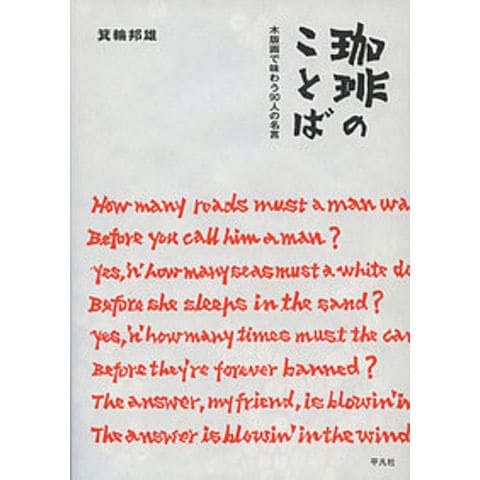 珈琲の
ことば
木版画で味わう90人の名言
箕輪邦雄
How many roads must a man wa
Before you call him a man?
yes,'n' how many seas must a white do
Before she sleeps in the sand?
yes,'n' how many times must the can
Before they're forever banned?
The answer, my friend, is blowin' in
The answer is blowin' in the wind
平凡社